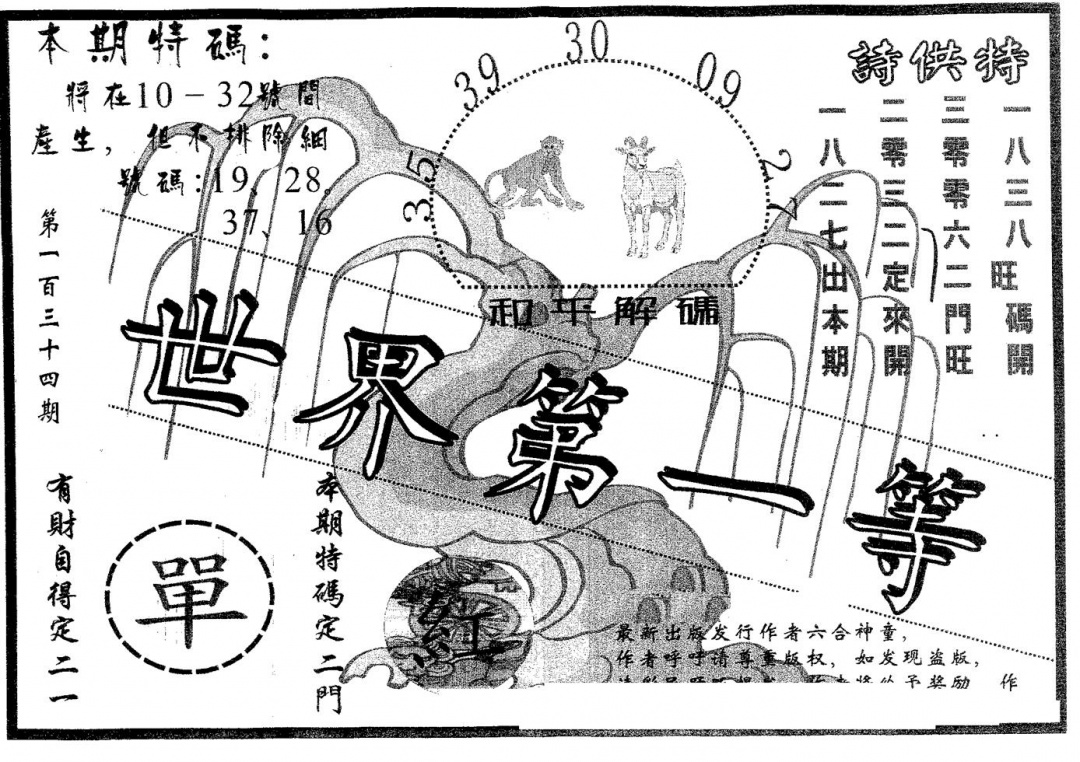 本期特碼：
將在10－32號間
產生，但不排除細
號碼：19、28。
37、16
第一百三十四期
35
39
30
09
27
和平解碼
詩供特
一八三八旺碼開
三零零六二門旺
二零三二定來開
一八二七出本期
世界第一等
有財自得定二一
單
本期特碼定二門
紅
最新出版发行作者六合神童，
作者呼吁请尊重版权，如发现盗版，
将给予奖励 作